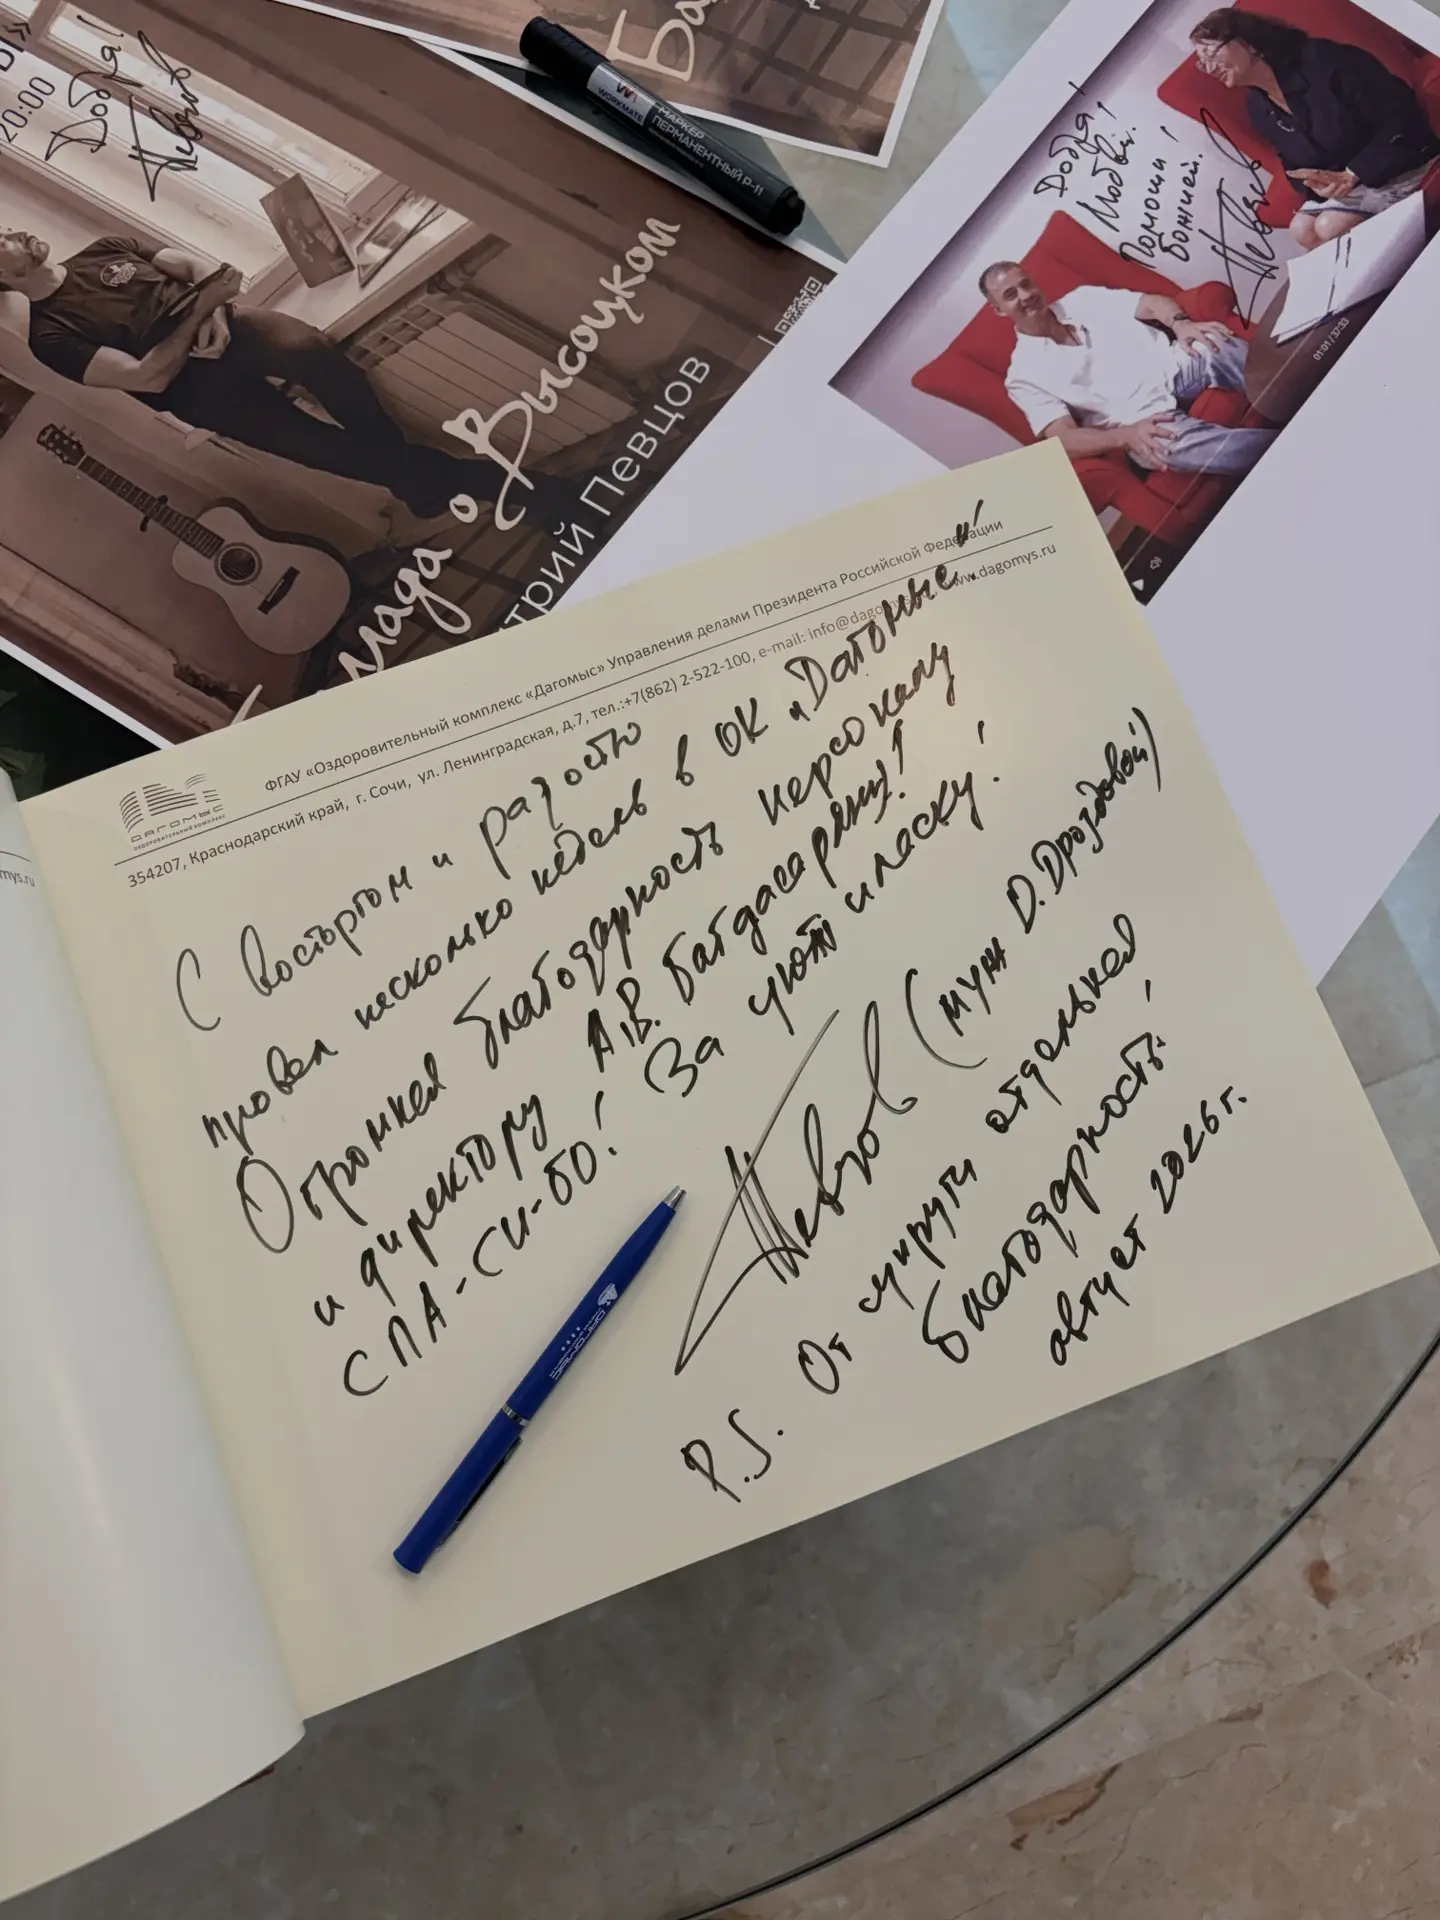 20:00
Добра!
Певцов
Ба
WORKMATE
МАРКЕР
ПЕРМАНЕНТНЫЙ P-11
Добра!
Любви!
Помощи
Божией!
Певцов
01:01 / 37:33
лада о Высоцком
трий Певцов
mys.ru
ДАГОМЫС
ОЗДОРОВИТЕЛЬНЫЙ КОМПЛЕКС
ФГАУ «Оздоровительный комплекс «Дагомыс» Управления делами Президента Российской Федерации
354207, Краснодарский край, г. Сочи, ул. Ленинградская, д.7, тел.:+7(862) 2-522-100, e-mail: info@dagomys.ru www.dagomys.ru
С восторгом и радостью
провел несколько недель в ОК "Дагомыс".
Огромная благодарность персоналу
и директору А.В. Багдасаряну!
СПА-СИ-БО! За уют и ласку!
Певцов (муж О. Дроздовой)
P.S. От супруги отдельная
благодарность!
август 2026 г.
ДАГОМЫС